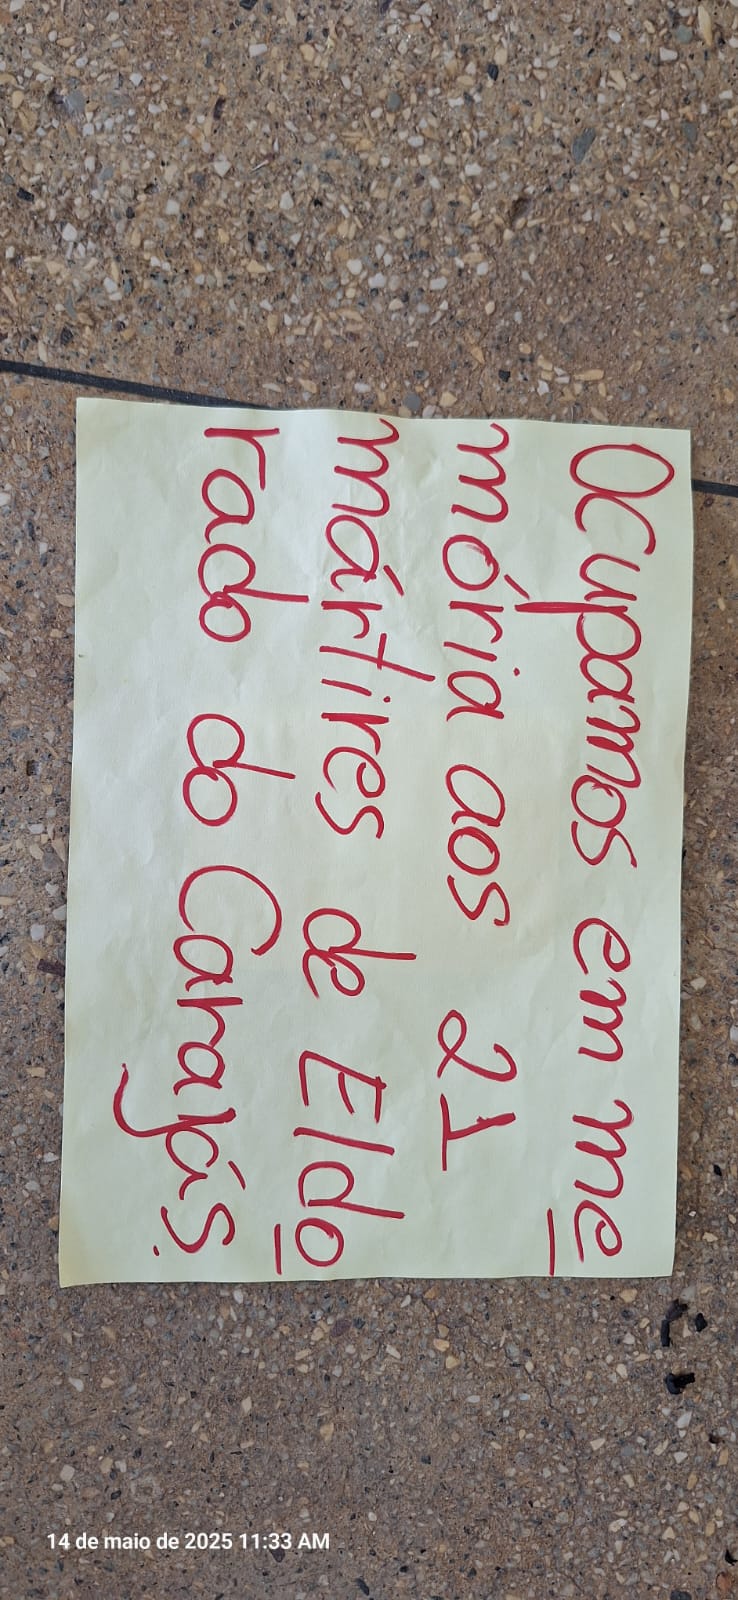 Ocupamos em me_
mória aos 21
mártires de Eldo_
rado do Carajás.
14 de maio de 2025 11:33 AM